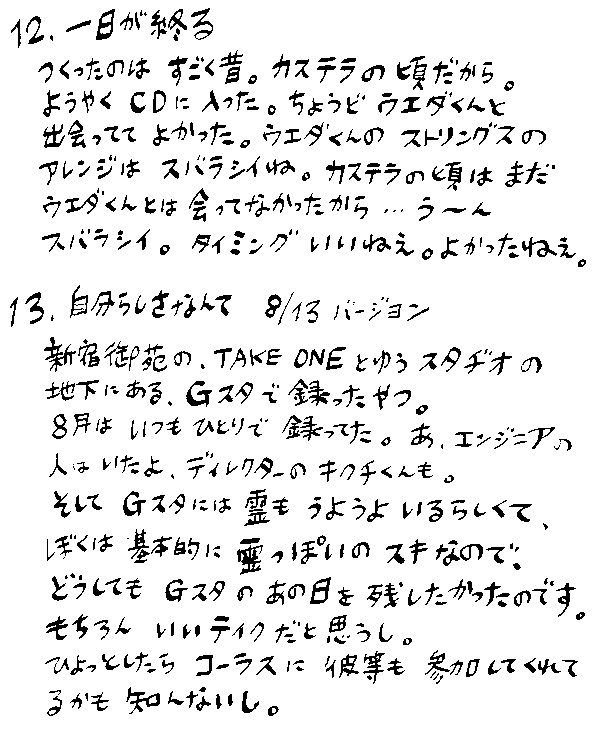 12. 一日が終る
つくったのは すごく昔。カステラの頃だから。
ようやく CDに入った。ちょうど ウエダくんと
出会ってて よかった。ウエダくんの ストリングスの
アレンジは スバラシイね。カステラの頃は まだ
ウエダくんとは 会ってなかったから … う〜ん
スバラシイ。タイミング いいねえ。よかったねえ。
13. 自分らしさなんて 8/13 バージョン
新宿御苑の、TAKE ONE とゆう スタヂオの
地下にある、Gスタで 録ったやつ。
8月は いつも ひとりで 録ってた。あ、エンジニアの
人は いたよ、ディレクターの キクチくんも。
そして Gスタには 霊も うようよ いるらしくて、
ぼくは 基本的に 霊っぽいの スキなので、
どうしても Gスタの あの日を 残したかったのです。
もちろん いいテイクだと思うし。
ひょっとしたら コーラスに 彼等も 参加してくれて
るかも 知んないし。